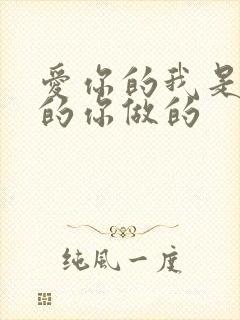 愛你的我是
的你做的
纯風一度